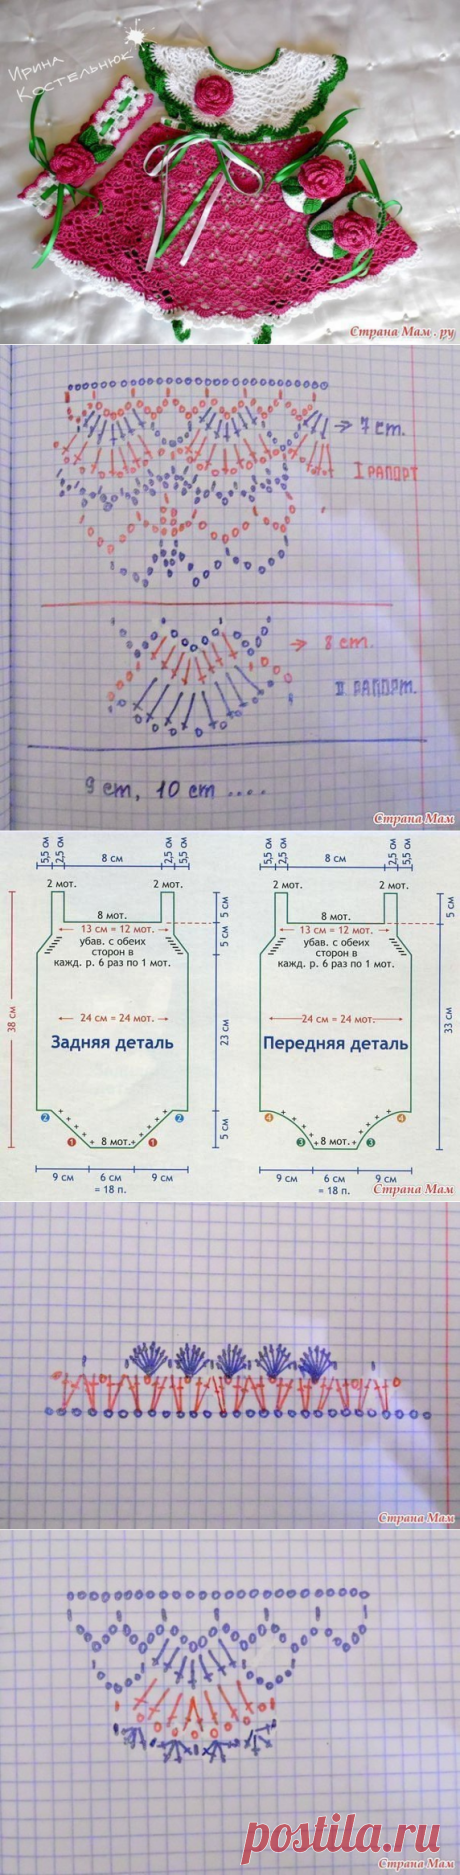 Ирина
Костельнюк
Страна Мам . ру
7 ст.
I РАПОРТ
8 ст.
II РАПОРТ.
9 ст, 10 ст ....
Страна Мам
5,5 см
2,5 см
8 см
2,5 см
5,5 см
2 мот.
2 мот.
8 мот.
13 см = 12 мот.
убав. с обеих
сторон в
кажд. р. 6 раз по 1 мот.
24 см = 24 мот.
Задняя деталь
38 см
5 см
5 см
23 см
5 см
2
1
8 мот.
1
2
9 см
6 см
9 см
= 18 п.
5,5 см
2,5 см
8 см
2,5 см
5,5 см
2 мот.
2 мот.
8 мот.
13 см = 12 мот.
убав. с обеих
сторон в
кажд. р. 6 раз по 1 мот.
24 см = 24 мот.
Передняя деталь
5 см
33 см
4
3
8 мот.
3
4
9 см
6 см
9 см
= 18 п.
Страна Мам
Страна Мам
postila.ru
Страна Мам